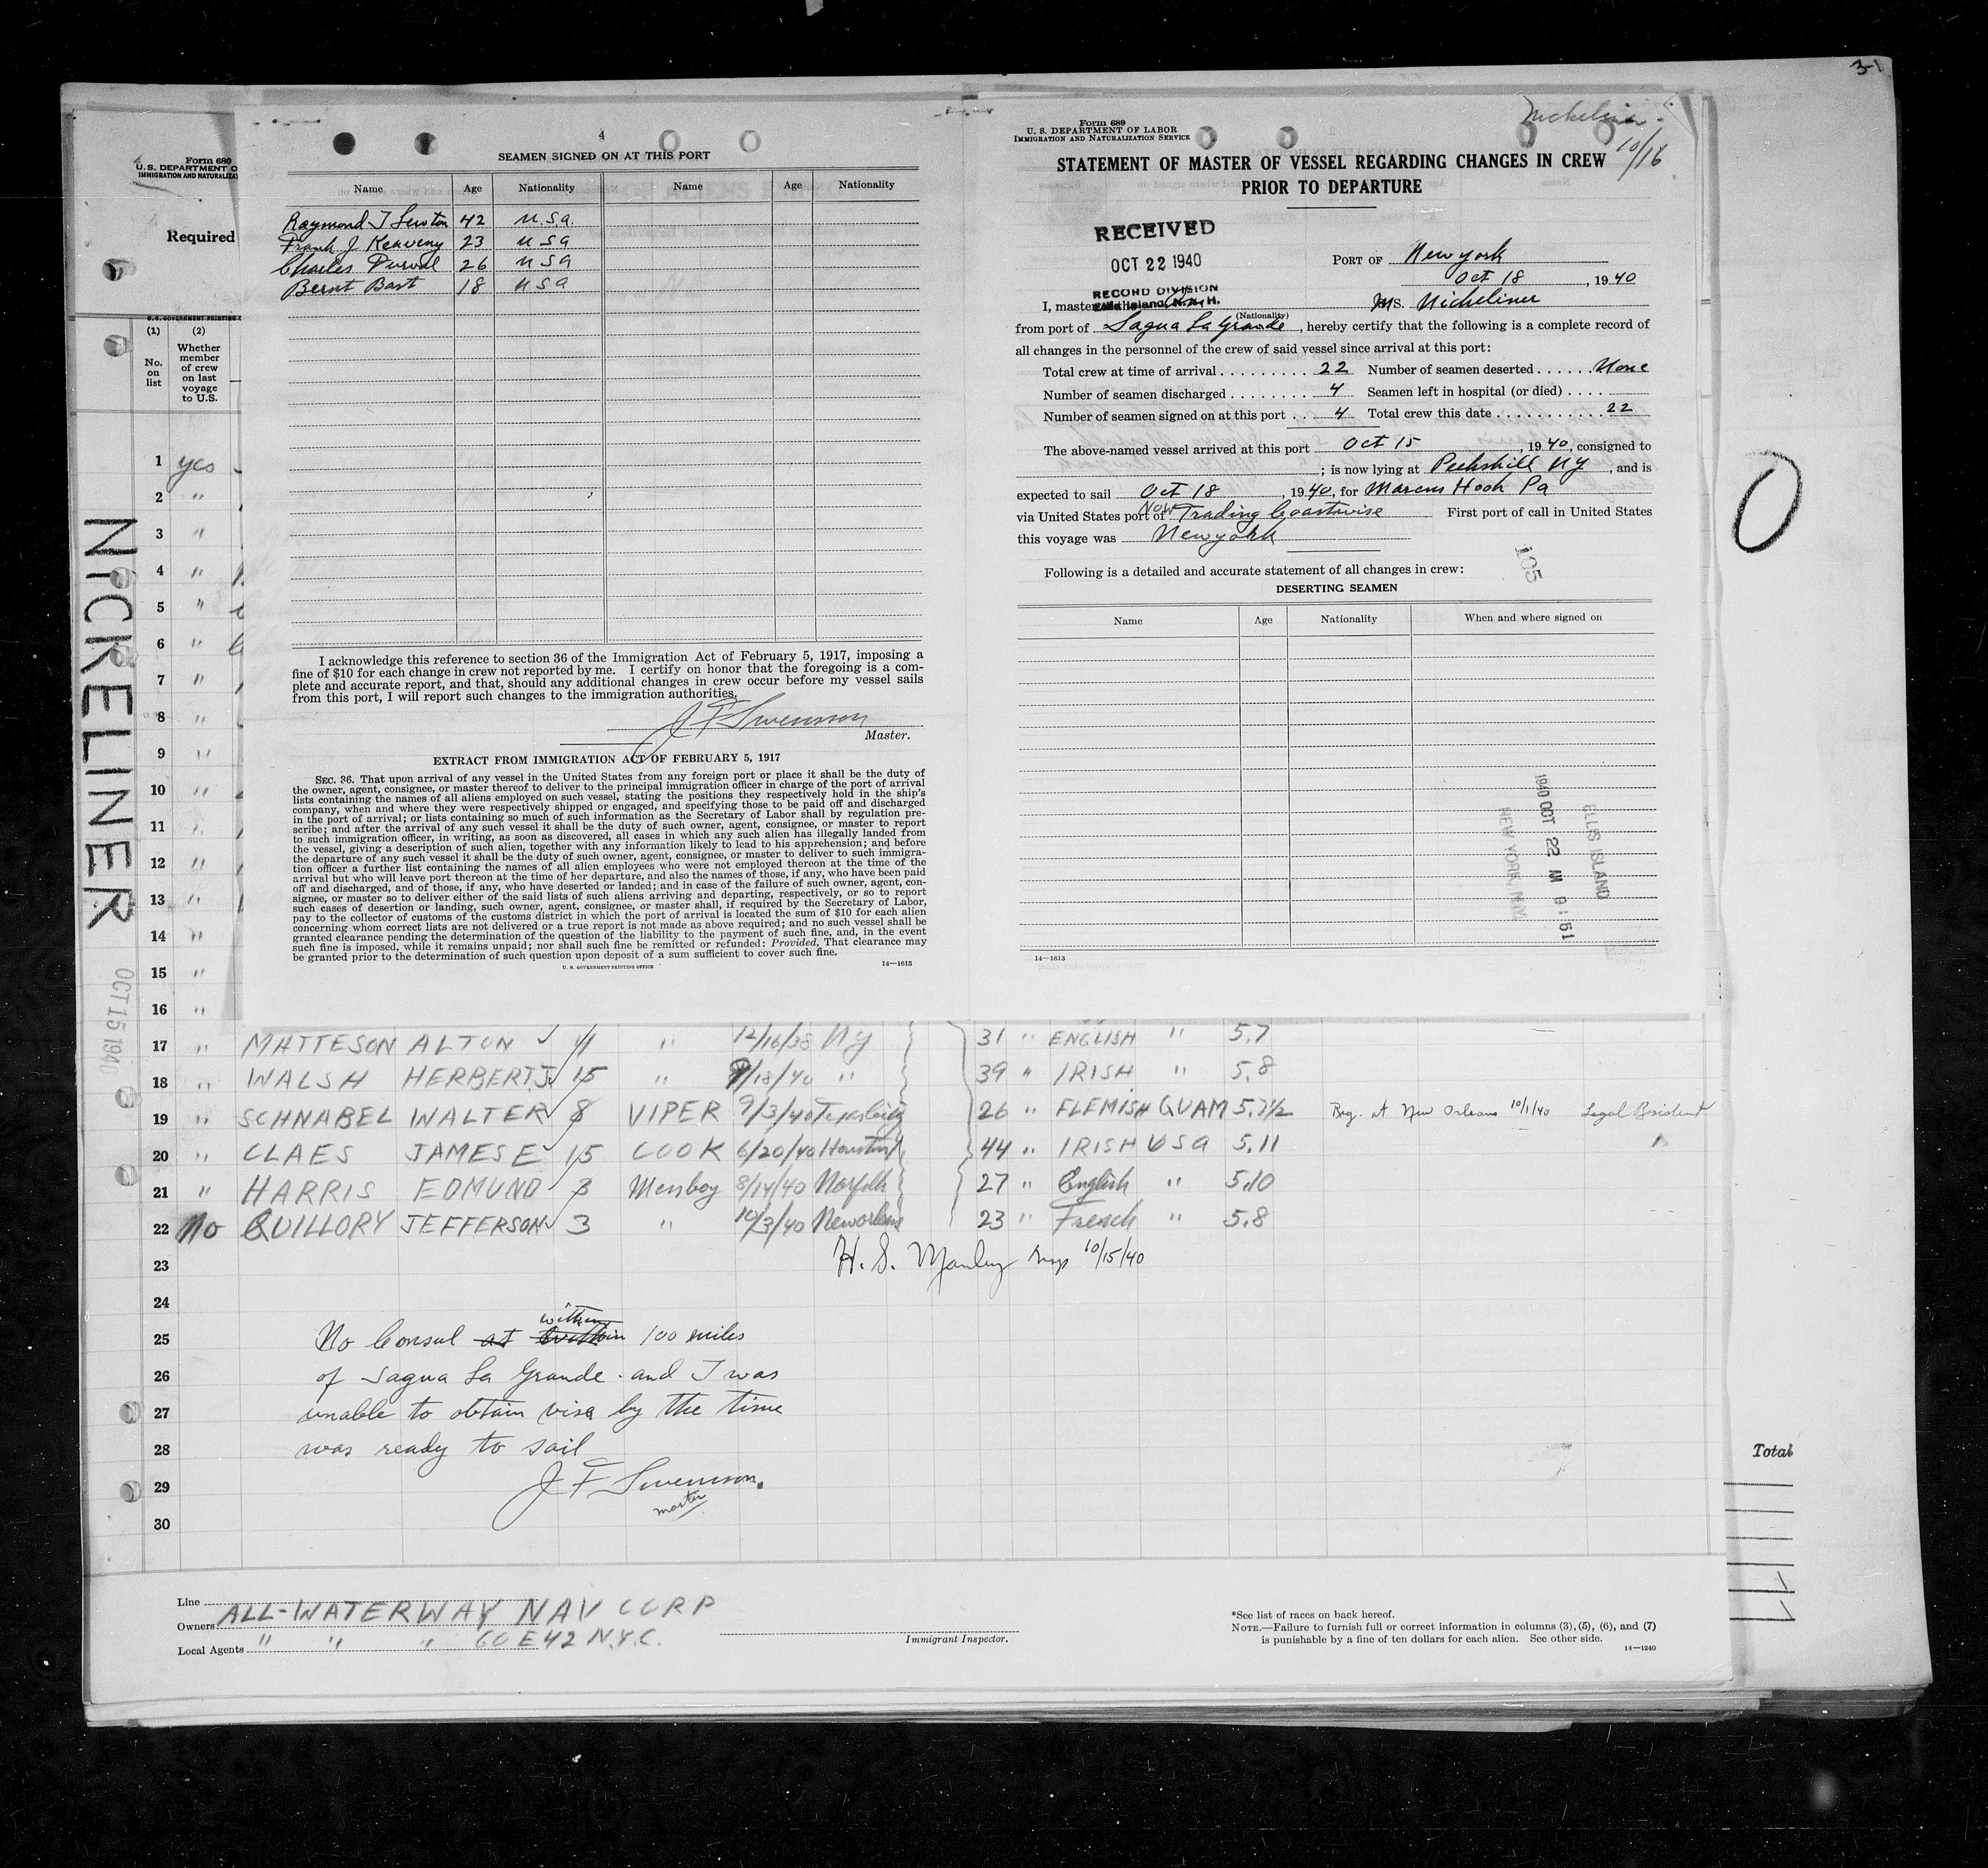 31
Form 680
U.S. DEPARTMENT O
IMMIGRATION AND NATURALIZA
Required
(1)
(2)
No. on list
Whether member of crew on last voyage to U.S.
NICKELINER
OCT 15 1940
4
SEAMEN SIGNED ON AT THIS PORT
Name Age Nationality Name Age Nationality
Raymond J 42 U.S.A.
Frank J. Keaveny 23 USA
Charles 26 USA
Bernt Bast 18 USA
I acknowledge this reference to section 36 of the Immigration Act of February 5, 1917, imposing a
fine of $10 for each change in crew not reported by me. I certify on honor that the foregoing is a com-
plete and accurate report, and that, should any additional changes in crew occur before my vessel sails
from this port, I will report such changes to the immigration authorities.
J F Swenson
Master.
EXTRACT FROM IMMIGRATION ACT OF FEBRUARY 5, 1917
SEC. 36. That upon arrival of any vessel in the United States from any foreign port or place it shall be the duty of
the owner, agent, consignee, or master thereof to deliver to the principal immigration officer in charge of the port of arrival
lists containing the names of all aliens employed on such vessel, stating the positions they respectively hold in the ship's
company, when and where they were respectively shipped or engaged, and specifying those to be paid off and discharged
in the port of arrival; or lists containing so much of such information as the Secretary of Labor shall by regulation pre-
scribe; and after the arrival of any such vessel it shall be the duty of such owner, agent, consignee, or master to report
to such immigration officer, in writing, as soon as discovered, all cases in which any such alien has illegally landed from
the vessel, giving a description of such alien, together with any information likely to lead to his apprehension; and before
the departure of any such vessel it shall be the duty of such owner, agent, consignee, or master to deliver to such immigra-
tion officer a further list containing the names of all alien employees who were not employed thereon at the time of the
arrival but who will leave port thereon at the time of her departure, and also the names of those, if any, who have been paid
off and discharged, and of those, if any, who have deserted or landed; and in case of the failure of such owner, agent, con-
signee, or master so to deliver either of the said lists of such aliens arriving and departing, respectively, or so to report
such cases of desertion or landing, such owner, agent, consignee, or master shall, if required by the Secretary of Labor,
pay to the collector of customs of the customs district in which the port of arrival is located the sum of $10 for each alien
concerning whom correct lists are not delivered or a true report is not made as above required; and no such vessel shall be
granted clearance pending the determination of the question of the liability to the payment of such fine, and, in the event
such fine is imposed, while it remains unpaid; nor shall such fine be remitted or refunded: Provided, That clearance may
be granted prior to the determination of such question upon deposit of a sum sufficient to cover such fine.
U. S. GOVERNMENT PRINTING OFFICE 14—1613
Form 689
U. S. DEPARTMENT OF LABOR
IMMIGRATION AND NATURALIZATION SERVICE
Nickeliner
10/16
STATEMENT OF MASTER OF VESSEL REGARDING CHANGES IN CREW
PRIOR TO DEPARTURE
RECEIVED
OCT 22 1940
RECORD DIVISION
Ellis Island, N.Y.H.
PORT OF New York
Oct 18, 1940
I, master MS. Nickeliner
(Nationality)
from port of Sagua La Grande, hereby certify that the following is a complete record of
all changes in the personnel of the crew of said vessel since arrival at this port:
Total crew at time of arrival . . . . . . . . . 22 Number of seamen deserted . . . . . . None
Number of seamen discharged . . . . . . . . 4 Seamen left in hospital (or died) . . . .
Number of seamen signed on at this port . . 4 Total crew this date . . . . . . . . . . . 22
The above-named vessel arrived at this port Oct 15, 1940, consigned to
; is now lying at Peekskill NY, and is
expected to sail Oct 18, 1940, for Marcus Hook Pa
via United States port of Now Trading Coastwise First port of call in United States
this voyage was New york
105
Following is a detailed and accurate statement of all changes in crew:
DESERTING SEAMEN
Name Age Nationality When and where signed on
1940 OCT 22 AM 9:51
ELLIS ISLAND
NEW YORK, N.Y.
14—1613
1 yes
2 "
3 "
4 "
5 "
6 "
7 "
8 "
9 "
10 "
11 "
12 "
13 "
14 "
15 "
16 "
17 " MATTESON ALTON 11 " 12/16/38 NY 31 " ENGLISH " 5.7
18 " WALSH HERBERT J 15 " 9/18/40 " 39 " IRISH " 5.8
19 " SCHNABEL WALTER 8 VIPER 9/3/40 26 " FLEMISH GUAM 5.7½ Reg. at New Orleans 10/1/40 Legal Resident
20 " CLAES JAMES E 15 COOK 6/20/40 Houston 44 " IRISH USA 5.11
21 " HARRIS EDMUND 3 Messboy 8/14/40 Norfolk 27 " English " 5.10
22 No QUILLORY JEFFERSON 3 " 10/3/40 New orleans 23 " French " 5.8
23 H. S. Manley Insp 10/15/40
24
25 No Consul at within within 100 miles
26 of Sagua La Grande. and I was
27 unable to obtain visa by the time
28 was ready to sail
29 J F Swenson.
master
30
Total
Line
Owners ALL-WATERWAY NAV CORP
Local Agents " " " 60 E 42 N.Y.C.
Immigrant Inspector.
*See list of races on back hereof.
NOTE.—Failure to furnish full or correct information in columns (3), (5), (6), and (7)
is punishable by a fine of ten dollars for each alien. See other side.
14—1240